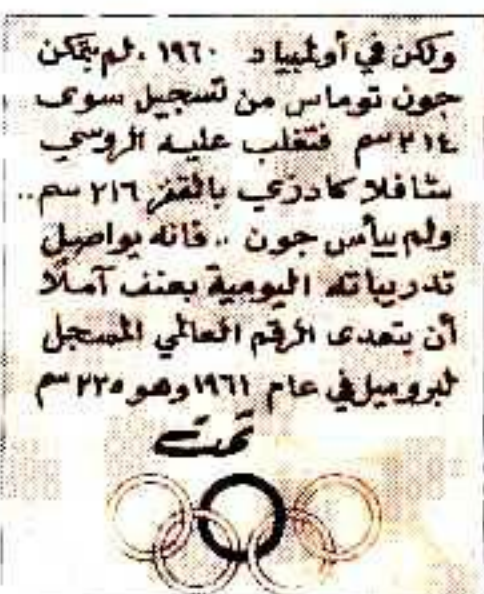 ولكن في أولمبياد ١٩٦٠ ، لم يتمكن
جون توماس من تسجيل سوى
٢١٤ سم فتغلب عليه الروسي
شافلا كادزي بالقفز ٢١٦ سم ..
ولم ييأس جون .. فانه يواصل
تدريباته اليومية بعنف آملاً
أن يتعدى الرقم العالمي المسجل
لبروميل في عام ١٩٦١ وهو ٢٢٥ سم
تمت